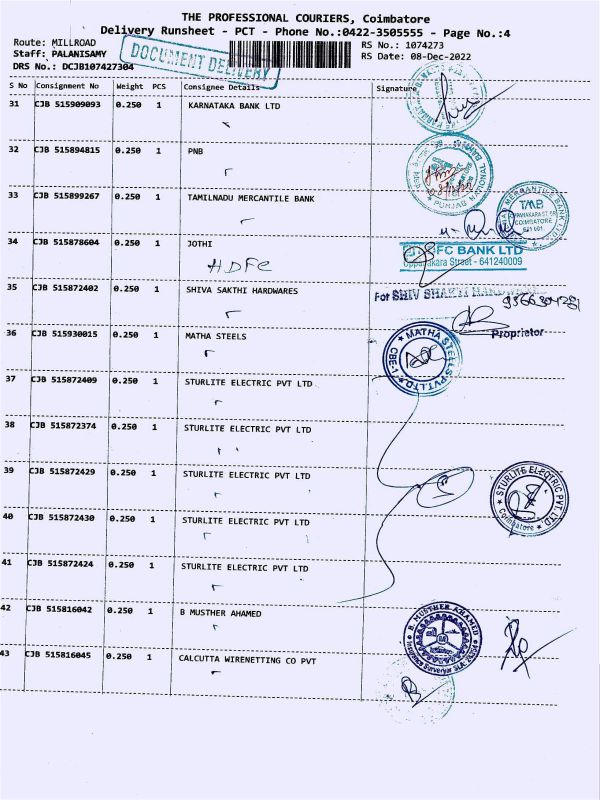 THE PROFESSIONAL COURIERS, Coimbatore
Delivery Runsheet - PCT - Phone No.:0422-3505555 - Page No.:4
Route: MILLROAD
RS No.: 1074273
Staff: PALANISAMY
RS Date: 08-Dec-2022
DRS No.: DCJB107427304
DOCUMENT DELIVERY
S No Consignment No Weight PCS Consignee Details Signature
31 CJB 515909093 0.250 1 KARNATAKA BANK LTD
32 CJB 515894815 0.250 1 PNB
PUNJAB NATIONAL BANK
33 CJB 515899267 0.250 1 TAMILNADU MERCANTILE BANK
TMB
COIMBATORE
641 001
34 CJB 515878604 0.250 1 JOTHI
HDFC
BANK LTD
Street - 641240009
35 CJB 515872402 0.250 1 SHIVA SAKTHI HARDWARES
For SHIV SHAKTI
9366304281
Proprietor
36 CJB 515930015 0.250 1 MATHA STEELS
MATHA STEELS PVT.LTD.
CBE-1
37 CJB 515872409 0.250 1 STURLITE ELECTRIC PVT LTD
38 CJB 515872374 0.250 1 STURLITE ELECTRIC PVT LTD
39 CJB 515872429 0.250 1 STURLITE ELECTRIC PVT LTD
STURLITE ELECTRIC PVT. LTD.
Coimbatore
40 CJB 515872430 0.250 1 STURLITE ELECTRIC PVT LTD
41 CJB 515872424 0.250 1 STURLITE ELECTRIC PVT LTD
42 CJB 515816042 0.250 1 B MUSTHER AHAMED
B. MUSTHER AHAMED
Insurance Surveyor
43 CJB 515816045 0.250 1 CALCUTTA WIRENETTING CO PVT